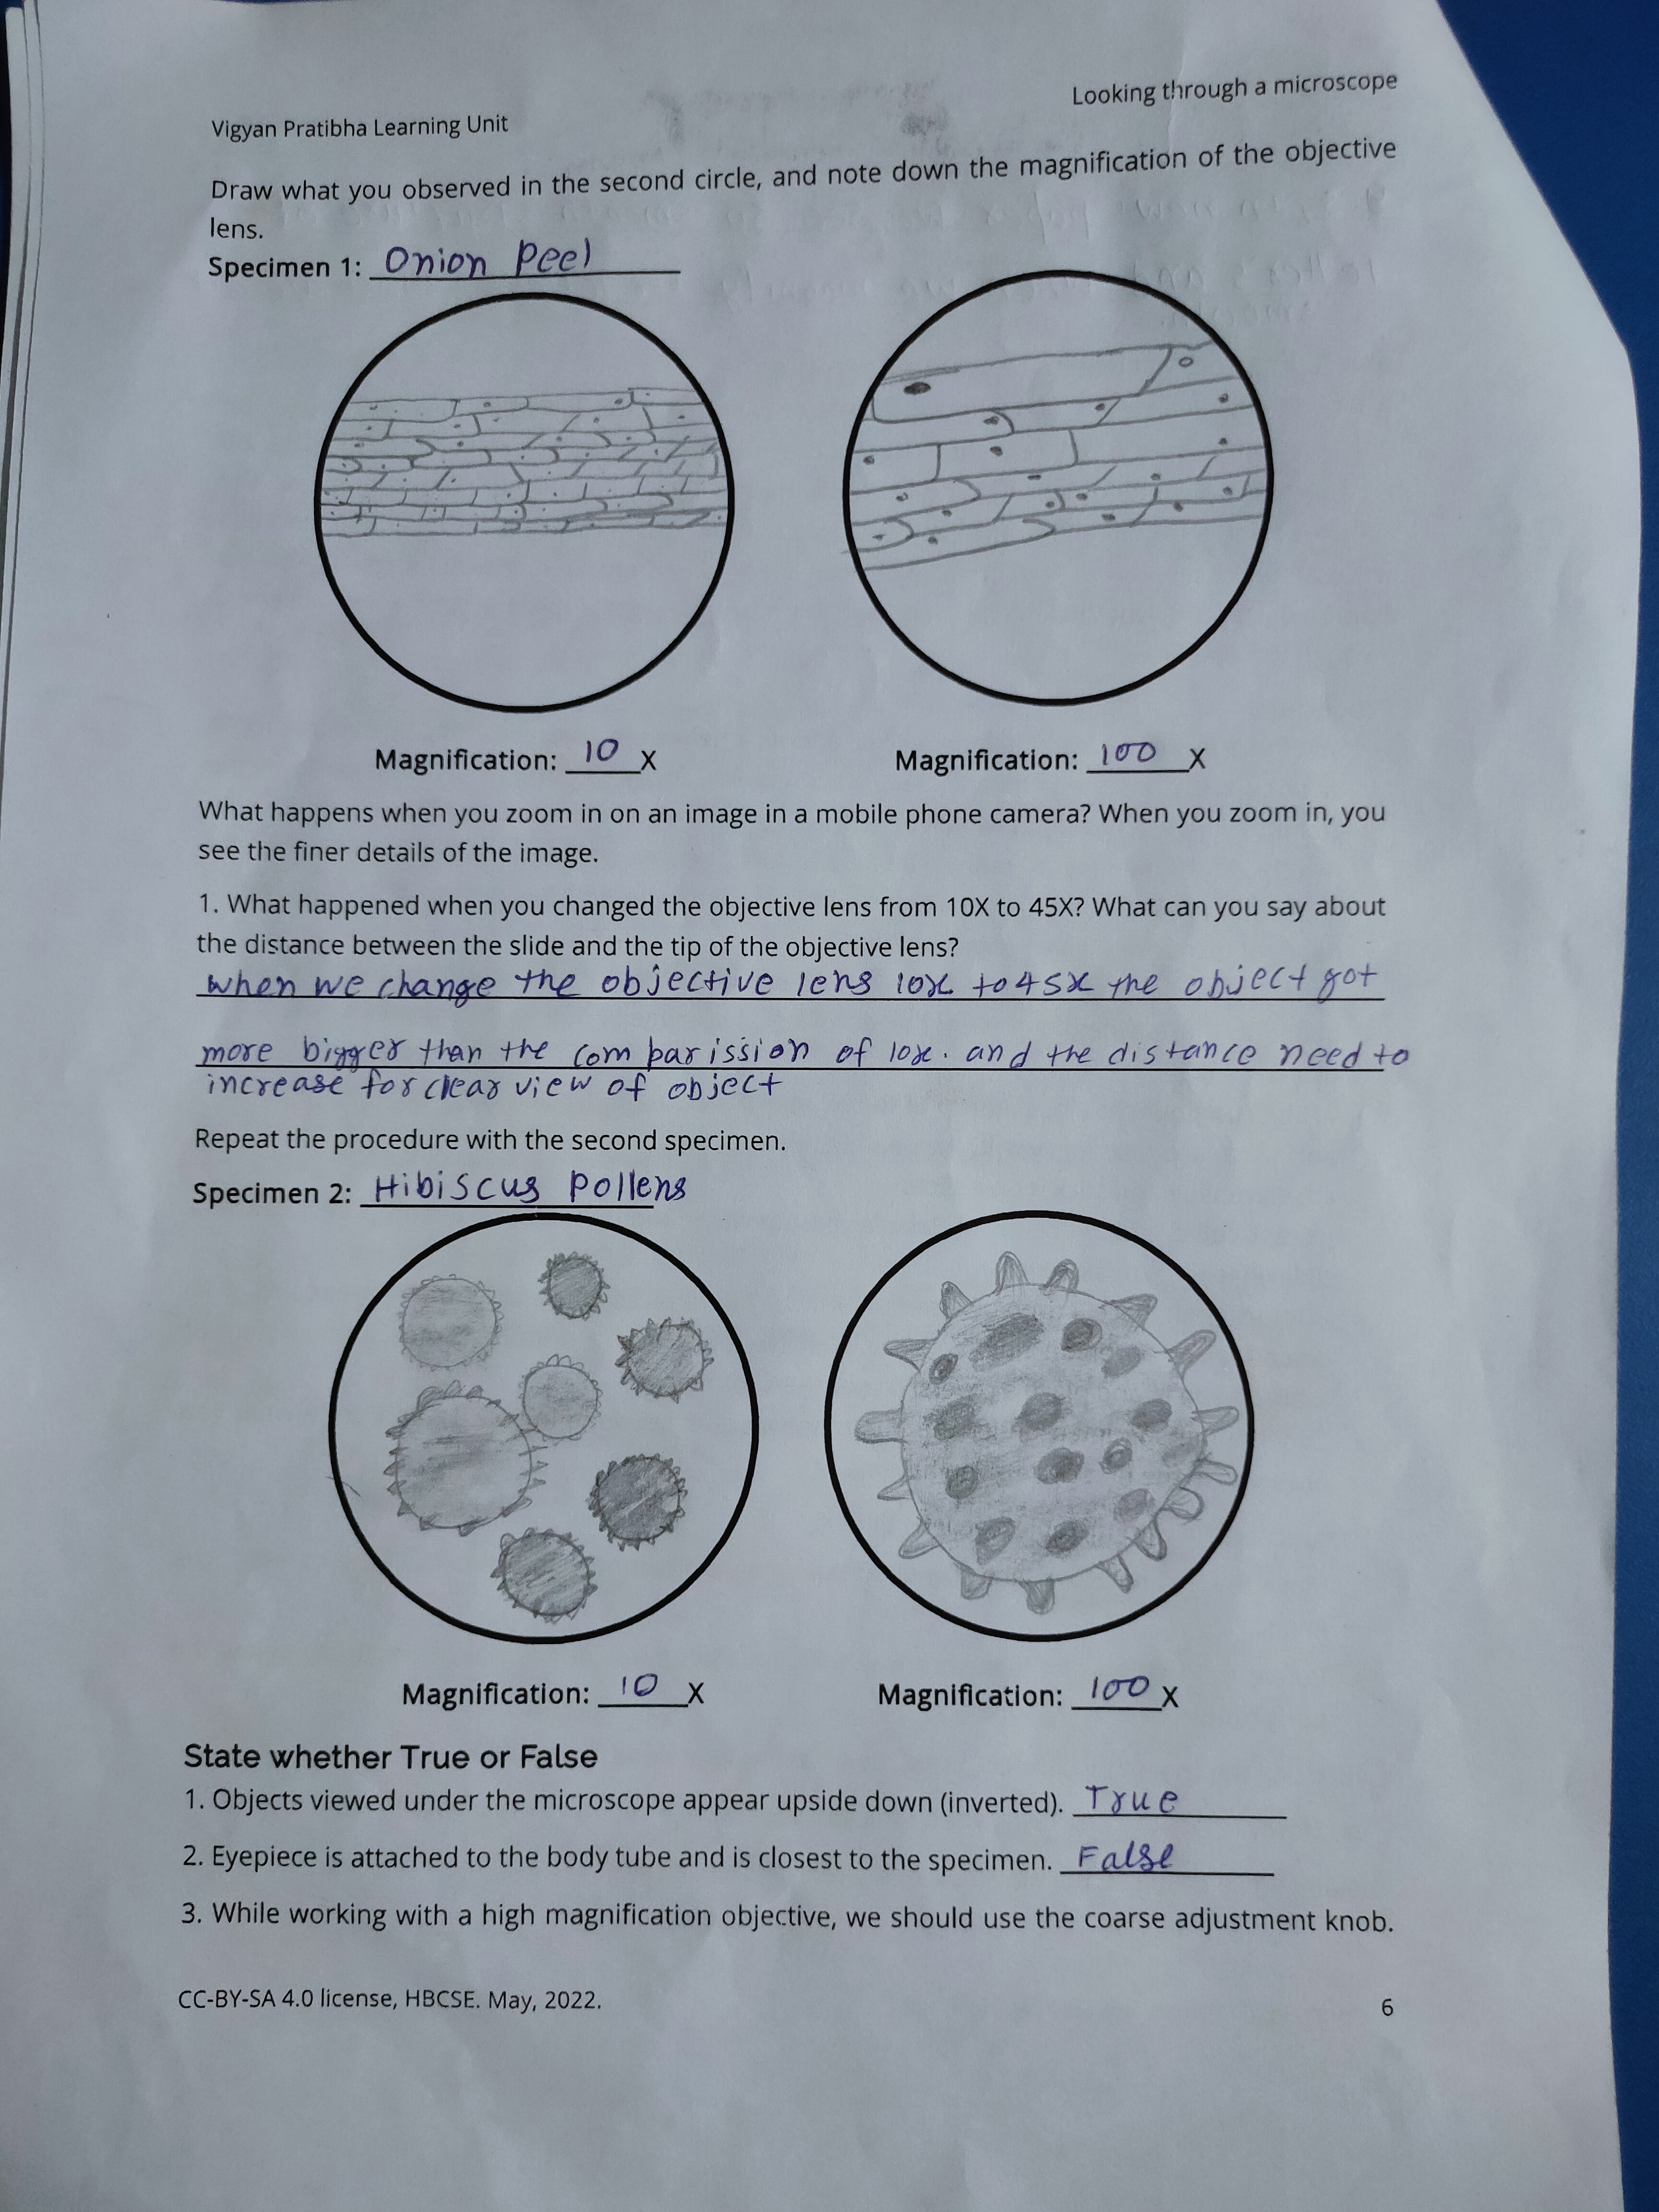 Looking through a microscope
Vigyan Pratibha Learning Unit
Draw what you observed in the second circle, and note down the magnification of the objective
lens.
Specimen 1: Onion Peel
Magnification: 10 X
Magnification: 100 X
What happens when you zoom in on an image in a mobile phone camera? When you zoom in, you
see the finer details of the image.
1. What happened when you changed the objective lens from 10X to 45X? What can you say about
the distance between the slide and the tip of the objective lens?
when we change the objective lens 10x to 45x the object got
more bigger than the comparission of 10x. and the distance need to
increase for clear view of object
Repeat the procedure with the second specimen.
Specimen 2: Hibiscus Pollens
Magnification: 10 X
Magnification: 100 X
State whether True or False
1. Objects viewed under the microscope appear upside down (inverted). True
2. Eyepiece is attached to the body tube and is closest to the specimen. False
3. While working with a high magnification objective, we should use the coarse adjustment knob.
CC-BY-SA 4.0 license, HBCSE. May, 2022.
6